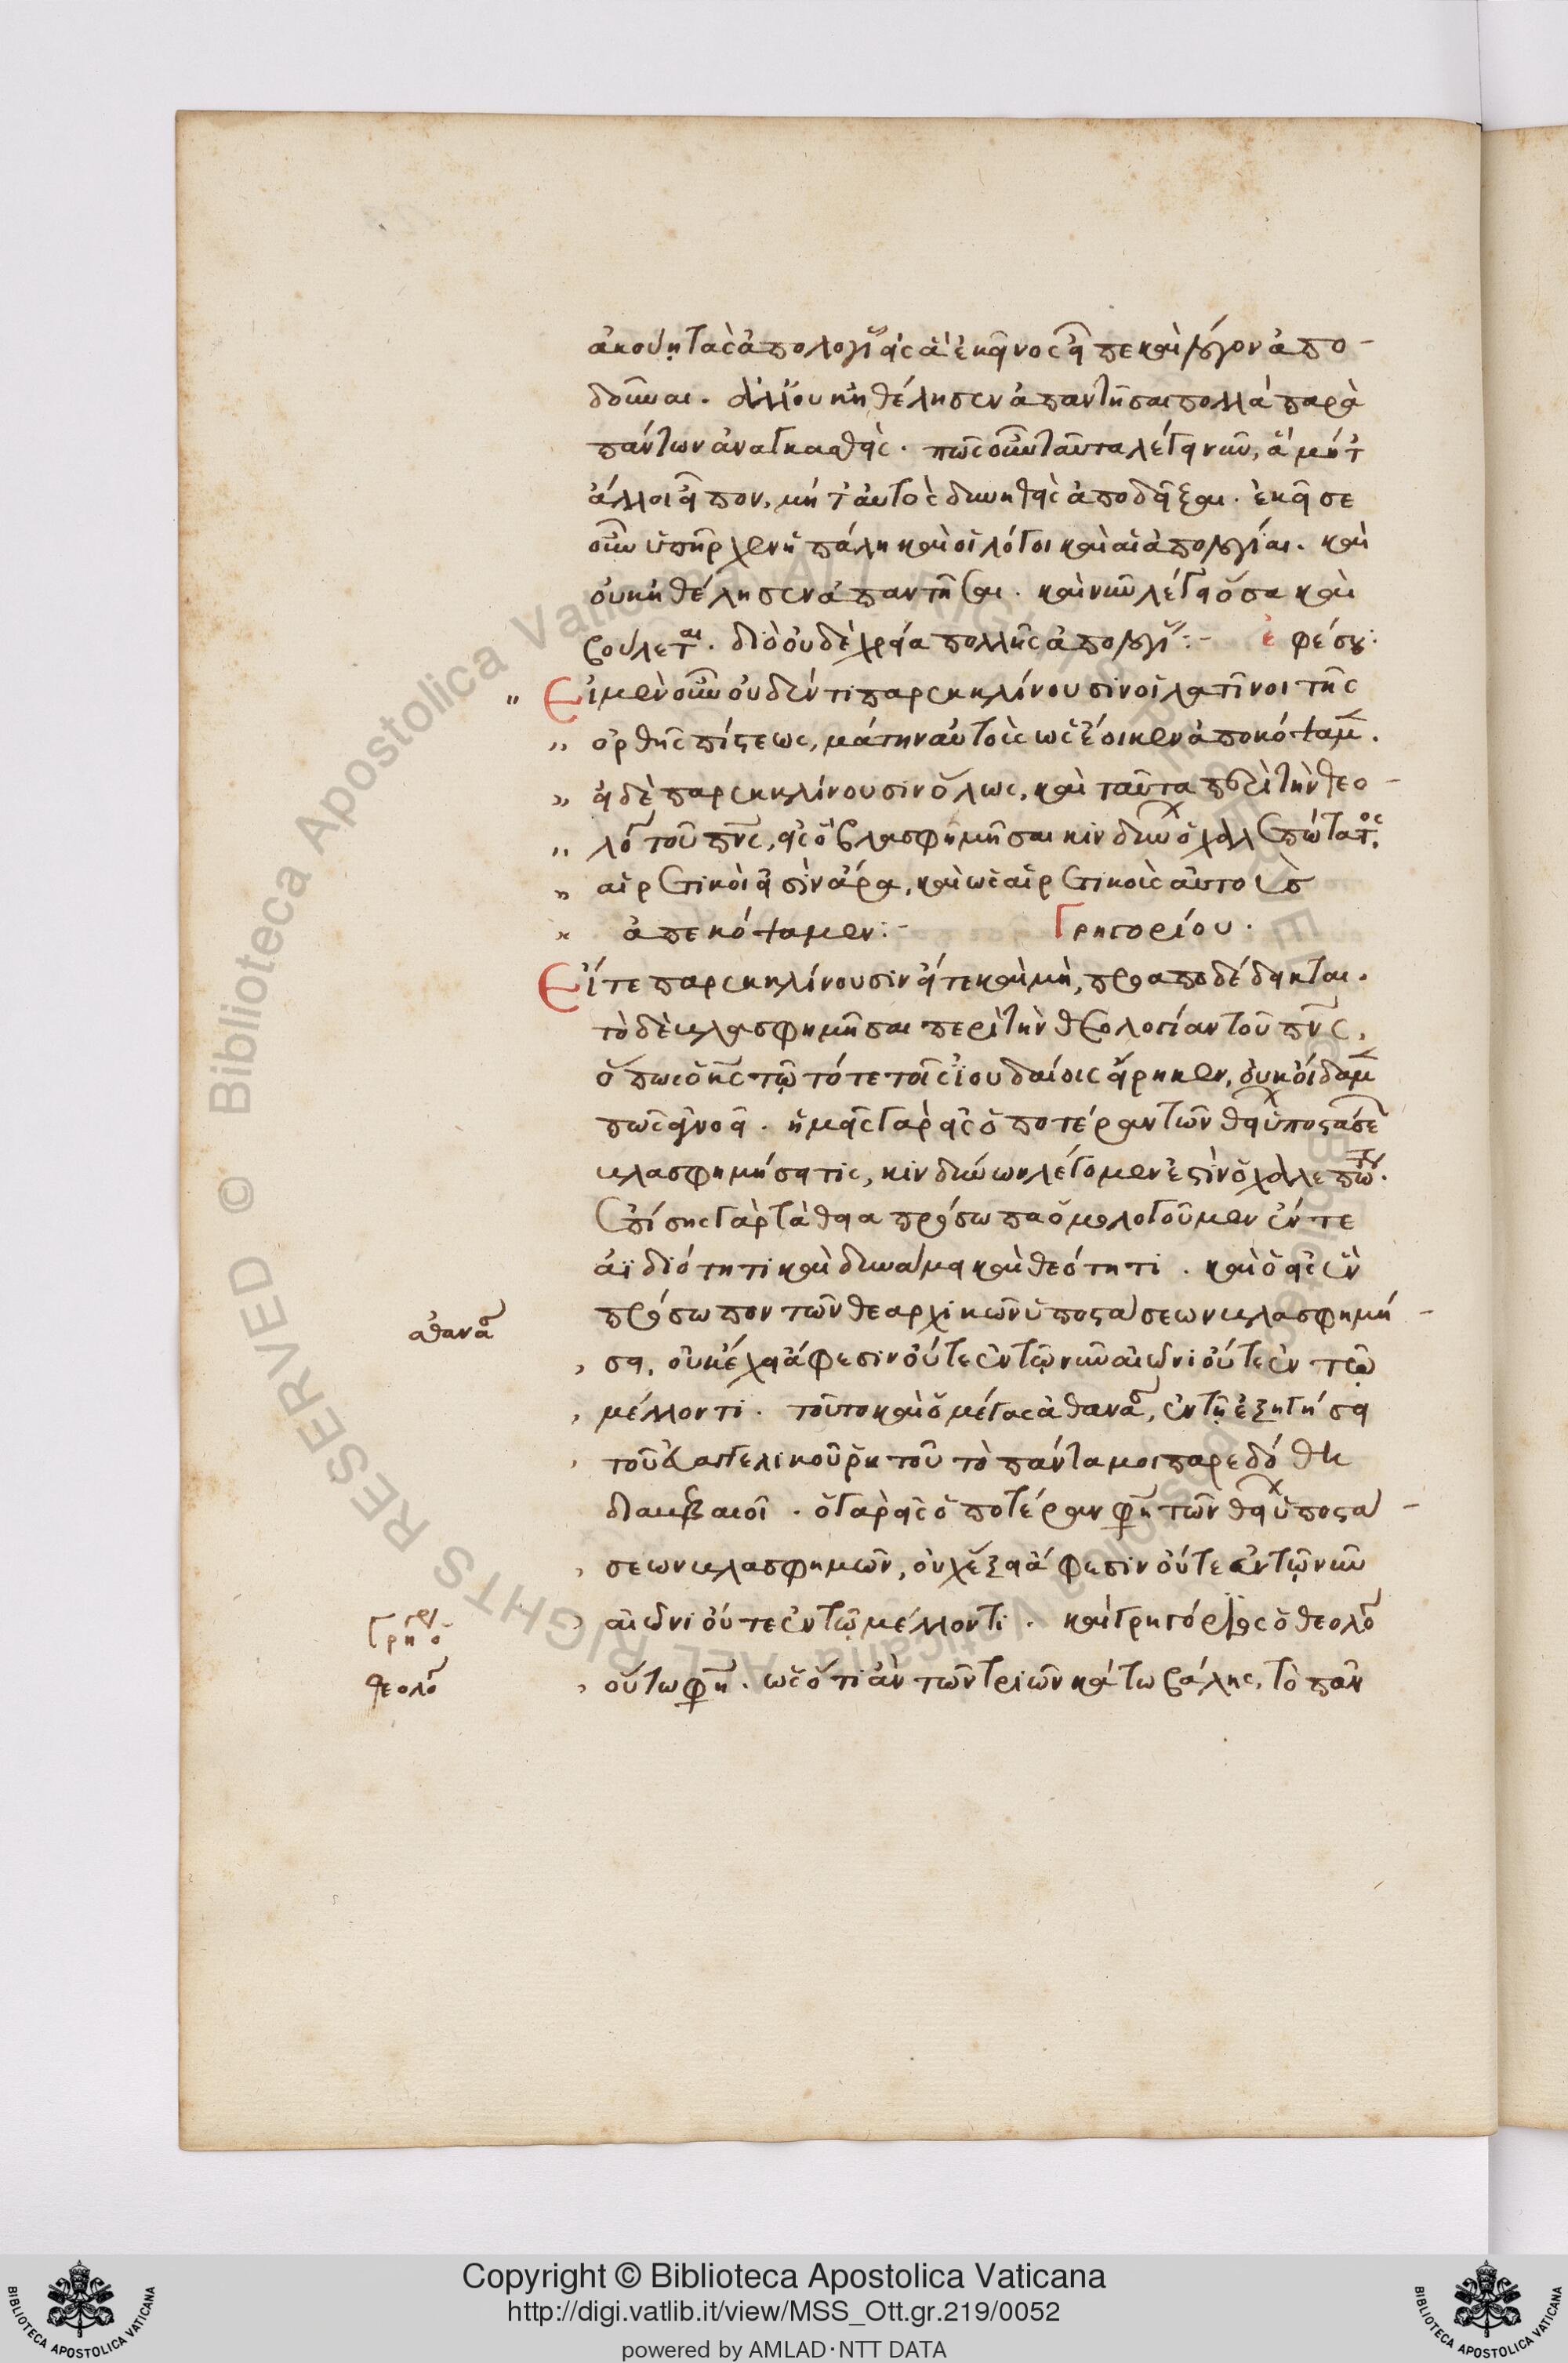 ἀκούῃ τὰς ἀπολογί εἰς ἃ ἐκεῖνος εἶπε καὶ λόγον ἀπο-
δοῦναι. ἀλλ' οὐκ ἠθέλησεν ἀπαντῆσαι πολλὰ παρὰ
πάντων ἀναγκασθείς. πῶς οὖν ταῦτα λέγει νῦν, ἃ μήτ
ἄλλοι εἶπον, μήτ αὐτὸς δυνηθεὶς ἀποδεῖξαι. ἐκεῖσε
οὖν ὑπῆρχεν ἡ πάλη καὶ οἱ λόγοι καὶ αἱ ἀπολογίαι. καὶ
οὐκ ἠθέλησεν ἀπαντῆσαι. καὶ νῦν λέγει ὅσα καὶ
βούλεται. διὸ οὐδὲ χρεία πολλῆς ἀπολογί:- ἐφέσου:
" Εἰ μὲν οὖν οὐδέν τι παρεκκλίνουσιν οἱ λατῖνοι τῆς
" ὀρθῆς πίστεως, μάτην αὐτοὺς ὡς ἔοικεν ἀπεκόψαμ.
" εἰ δὲ παρεκκλίνουσιν ὅλως, καὶ ταῦτα περὶ τὴν θεο-
" λο τοῦ πνς, εἰς ὃ βλασφημῆσαι κίνδυν ὁ χαλεπώτατος.
" αἱρετικοὶ εἰσὶν ἄρα, καὶ ὡς αἱρετικοὺς αὐτοὺς
" ἀπεκόψαμεν:- Γρηγορίου.
Εἴτε παρεκκλίνουσιν εἴτε καὶ μὴ, προαποδέδεικται.
τὸ δὲ βλασφημῆσαι περὶ τὴν θεολογίαν τοῦ πνς,
ὅπως ὁ κς τῷ τότε τοῖς ἰουδαίοις εἴρηκεν, οὐκ οἴδαμ
πῶς ἐννοεῖ. ἡμεῖς γὰρ εἰς ὁποτέραν τῶν θει ὑποστάσε
βλασφημήσει τις, κίνδυνον λέγομεν ἐστὶν ὁ χαλεπώτ.
ἐπίσης γὰρ τὰ θεῖα πρόσωπα ὁμολογοῦμεν ἐν τε
ἀϊδιότητι καὶ δυνάμει καὶ θεότητι. καὶ ὁ εἰς ἓν
πρόσωπον τῶν θεαρχικῶν ὑποστάσεων βλασφημή-
ἀθανα
, σει, οὐκ ἔχει ἄφεσιν οὔτε ἐν τῷ νῦν αἰῶνι οὔτε ἐν τῷ
, μέλλοντι. τοῦτο καὶ ὁ μέγας ἀθανα, ἐν τῇ ἐξηγήσει
, τοῦ εὐαγγελικοῦ ῥητοῦ τὸ πάντα μοι παρεδόθη
διαβεβαιοῖ. ὁ γὰρ εἰς ὁποτέραν φη τῶν θει ὑποστα-
, σεων βλασφημῶν, οὐχ ἕξει ἄφεσιν οὔτε ἐν τῷ νῦν
, αἰῶνι οὔτε ἐν τῷ μέλλοντι. καὶ Γρηγόριος ὁ θεολο
Γρηγορ ὁ
θεολο
, οὕτω φη. ὡς ὅτι ἂν τῶν τριῶν κάτω βάλῃς, τὸ πᾶν
Copyright © Biblioteca Apostolica Vaticana
http://digi.vatlib.it/view/MSS_Ott.gr.219/0052
powered by AMLAD·NTT DATA
BIBLIOTECA APOSTOLICA VATICANA
BIBLIOTECA APOSTOLICA VATICANA